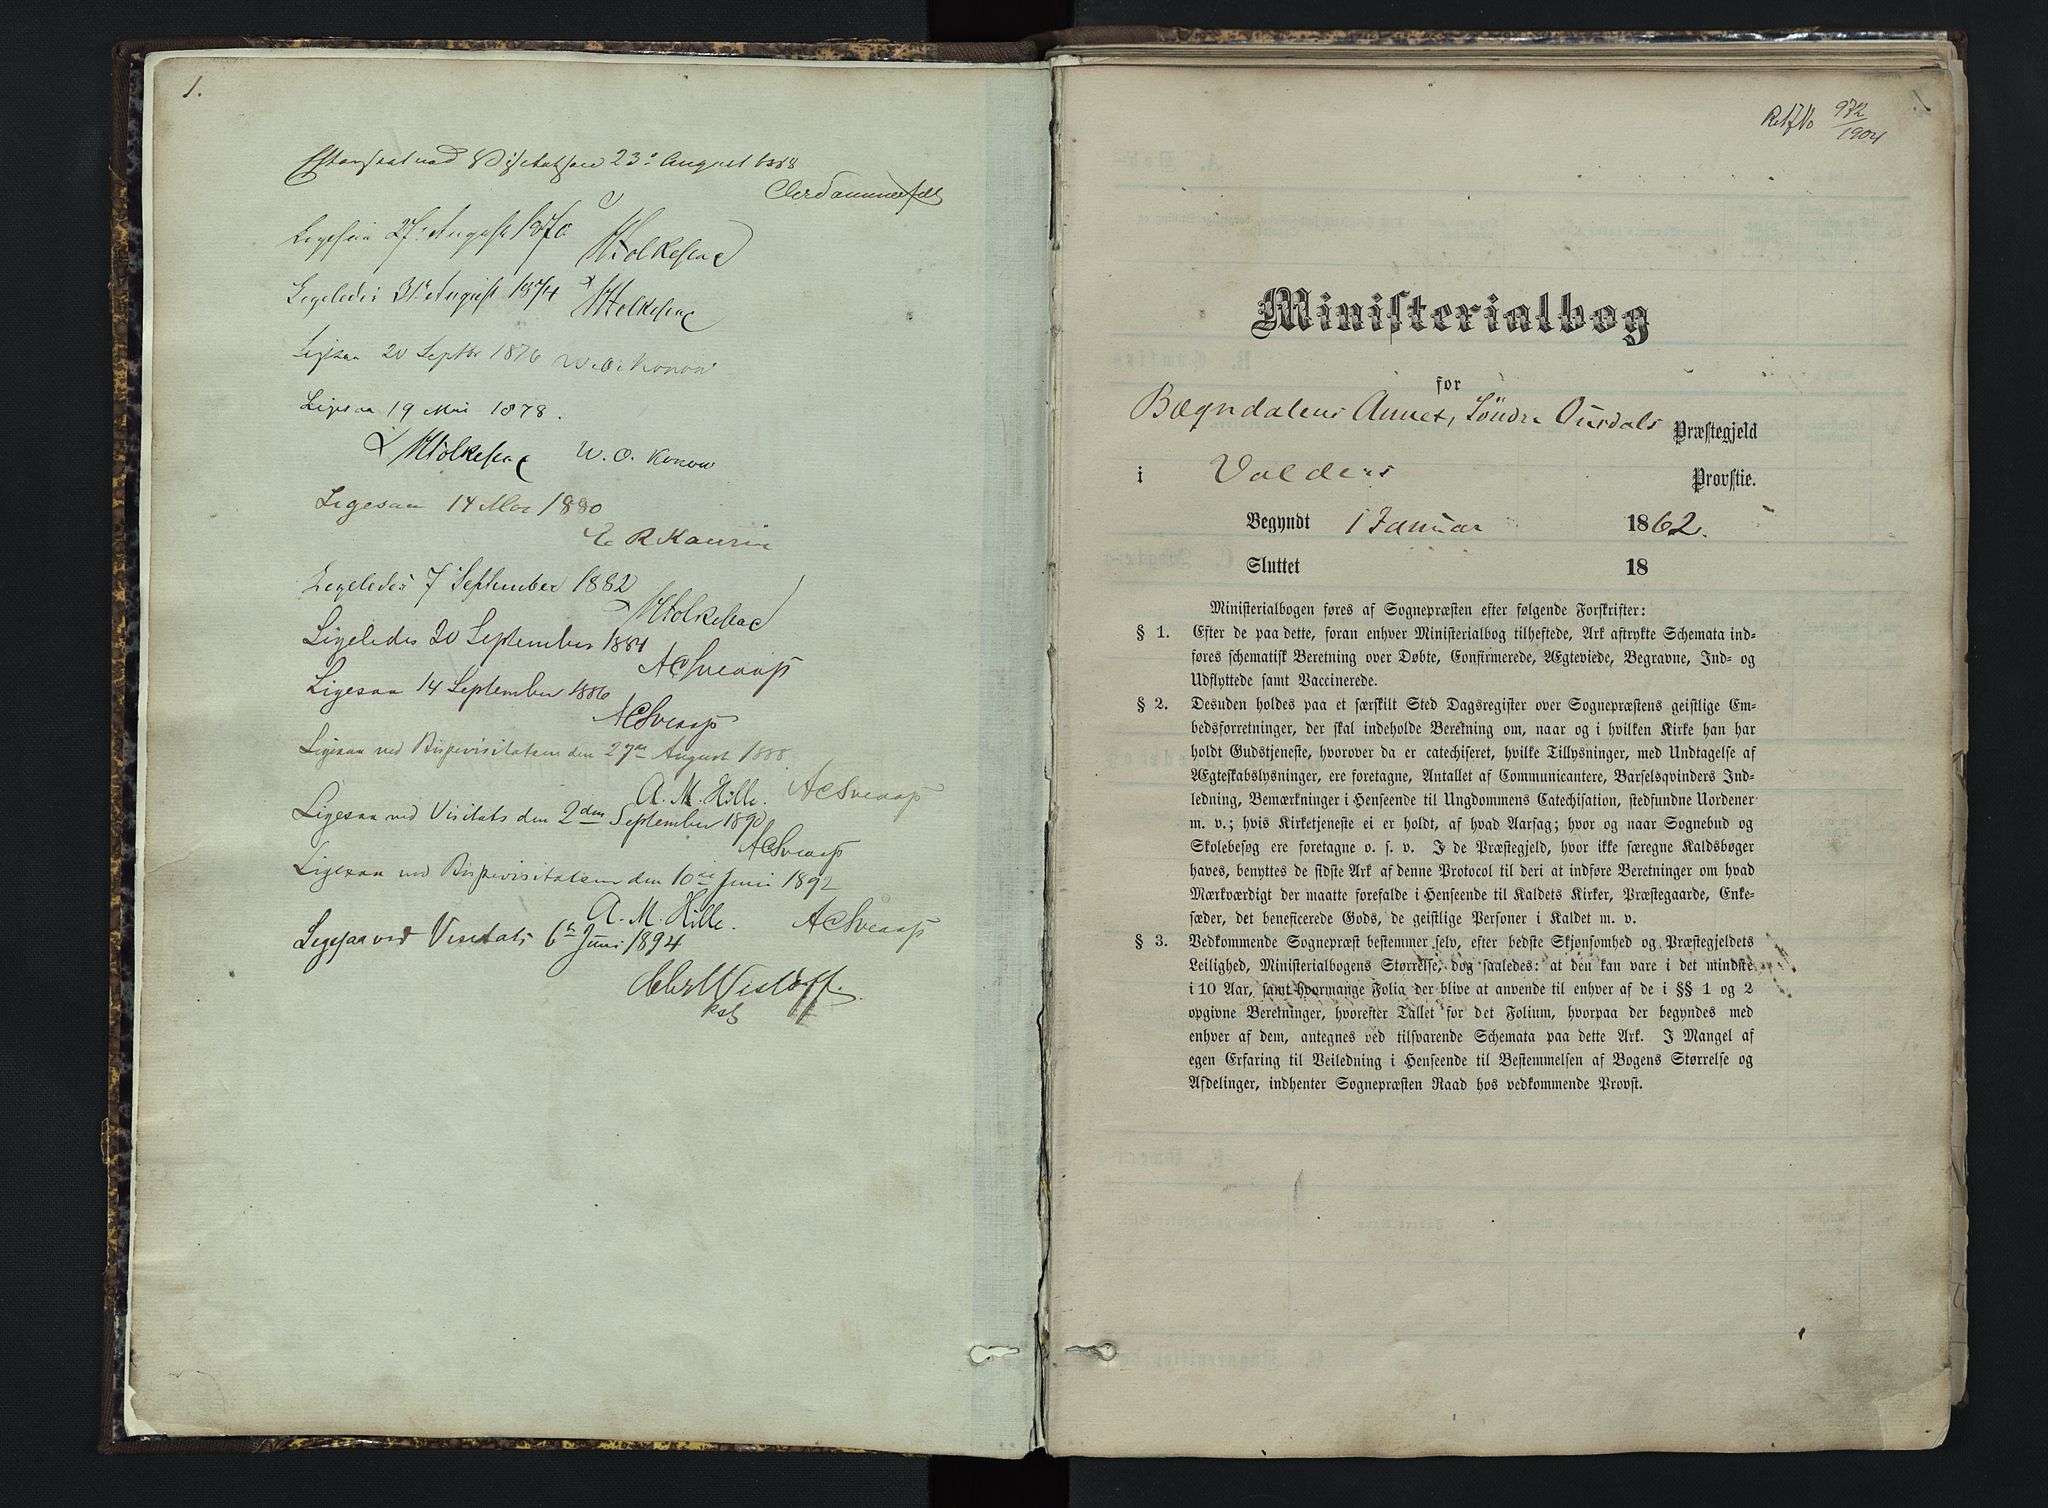 1.
Ligesaa 27de August 1870
Ligeledes 31te August 1874
Ligesaa 20 Septbr 1876 W. O. Konow
Ligesaa 19 Mai 1878.
W. O. Konow
Ligesaa 14 Mai 1880
Ligeledes 7 September 1882
Ligeledes 20 September 1884
ACSveaas
Ligesaa 14 September 1886
ACSveaas
Ligesaa ved Bispevisitatsen den 27de August 1888
A. M. Hille. ACSveaas
Ligesaa ved Visitats den 2den September 1890
ACSveaas
Ligesaa ved Bispevisitatsen den 10de Juni 1892
A. M. Hille. ACSveaas
Ligesaa ved Visitats 6te Juni 1894
972/1904
Ministerialbog
for
Bægndalens Annex, Søndre Ourdals Præstegjeld
i Valders Provstie.
Begyndt 1 Januar 1862.
Sluttet 18
Ministerialbogen føres af Sognepræsten efter følgende Forskrifter:
§ 1. Efter de paa dette, foran enhver Ministerialbog tilheftede, Ark aftrykte Schemata ind-
føres schematisk Beretning over Døbte, Confirmerede, Ægteviede, Begravne, Ind- og
Udflyttede samt Vaccinerede.
§ 2. Desuden holdes paa et særskilt Sted Dagsregister over Sognepræstens geistlige Em-
bedsforretninger, der skal indeholde Beretning om, naar og i hvilken Kirke han har
holdt Gudstjeneste, hvorover da er catechiseret, hvilke Tillysninger, med Undtagelse af
Ægteskabslysninger, ere foretagne, Antallet af Communicantere, Barselsqvinders Ind-
ledning, Bemærkninger i Henseende til Ungdommens Catechisation, stedfundne Uordener
m. v.; hvis Kirketjeneste ei er holdt, af hvad Aarsag; hvor og naar Sognebud og
Skolebesøg ere foretagne o. s. v. I de Præstegjeld, hvor ikke særegne Kaldsbøger
haves, benyttes de sidste Ark af denne Protocol til deri at indføre Beretninger om hvad
Mærkværdigt der maatte forefalde i Henseende til Kaldets Kirker, Præstegaarde, Enke-
sæder, det beneficerede Gods, de geistlige Personer i Kaldet m. v.
§ 3. Vedkommende Sognepræst bestemmer selv, efter bedste Skjønsomhed og Præstegjeldets
Leilighed, Ministerialbogens Størrelse, dog saaledes: at den kan vare i det mindste
i 10 Aar, samt hvormange Folia der blive at anvende til enhver af de i §§ 1 og 2
opgivne Beretninger, hvorefter Tallet for det Folium, hvorpaa der begyndes med
enhver af dem, antegnes ved tilsvarende Schemata paa dette Ark. I Mangel af
egen Erfaring til Veiledning i Henseende til Bestemmelsen af Bogens Størrelse og
Afdelinger, indhenter Sognepræsten Raad hos vedkommende Provst.